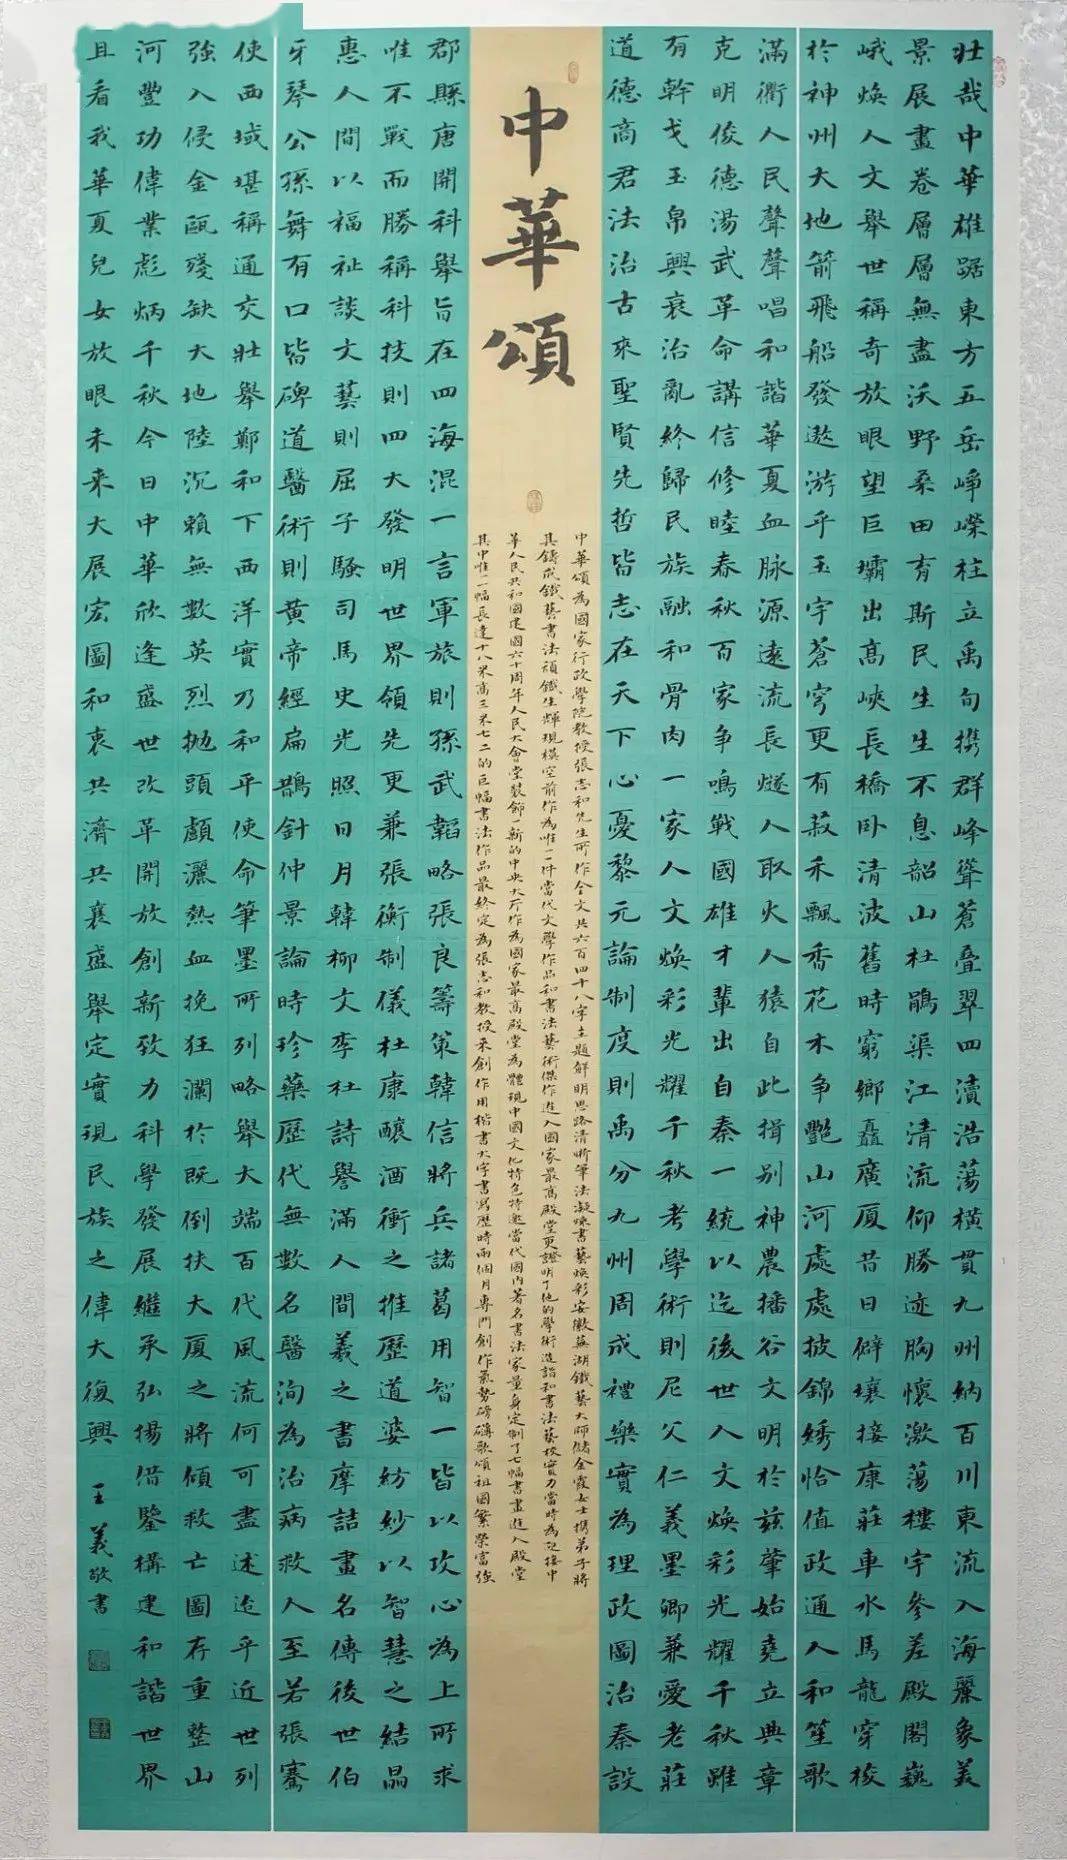 壯哉中華雄踞東方五岳峥嶸柱立禹甸携群峰聳蒼疊翠四瀆浩蕩橫貫九州納百川東流入海麗象美
景展畫卷層層無盡沃野桑田有斯民生生不息韶山杜鵑渠江清流仰勝迹胸懷激蕩樓宇參差殿閣巍
峨煥人文舉世稱奇放眼望巨壩出高峽長橋卧清波舊時窮鄉矗廣厦昔日僻壤接康莊車水馬龍穿梭
於神州大地箭飛船發遨游乎玉宇蒼穹更有菽禾飄香花木争艷山河處處披錦綉恰值政通人和笙歌
滿衢人民聲聲唱和諧華夏血脉源遠流長燧人取火人猿自此揖别神農播谷文明於兹肇始堯立典章
克明俊德湯武革命講信修睦春秋百家争鳴戰國雄才輩出自秦一統以迄後世人文煥彩光耀千秋雖
有幹戈玉帛興衰治亂終歸民族融和骨肉一家人文煥彩光耀千秋考學術則尼父仁義墨卿兼愛老莊
道德商君法治古來聖賢先哲皆志在天下心憂黎元論制度則禹分九州周成禮樂實為理政圖治秦設
中華頌
中華頌為國家行政學院教授張志和先生所作全文共六百四十八字主題鮮明思路清晰筆法凝煉書藝煥彩安徽蕪湖鐵藝大師儲金霞女士携弟子將
其鑄成鐵藝書法頑鐵生輝現模空前作為唯一一件當代文學作品和書法藝術傑作進入國家最高殿堂更證明了他的學術造詣和書法藝枝實力當時為迎接中
華人民共和國建國六十周年人民大會堂裝飾一新的中央大厅作為國家最高殿堂為體現中國文化特色特邀當代國内著名書法家量身定制了七幅書畫進入殿堂
其中唯一一幅長達十八米高三米七二的巨幅書法作品最終定為張志和教授來創作用楷書大字書寫歷時兩個月專門創作氣勢磅礴歌頌祖國繁榮富强
郡縣唐開科舉旨在四海混一言軍旅則孫武韜略張良籌策韓信將兵諸葛用智一皆以攻心為上所求
唯不戰而勝稱科技則四大發明世界領先更兼張衡制儀杜康釀酒衝之推歷道婆紡紗以智慧之結晶
惠人間以福祉談文藝則屈子騷司馬史光照日月韓柳文李杜詩譽滿人間義之書摩詰畫名傳後世伯
牙琴公孫舞有口皆碑道醫術則黄帝經扁鵲針仲景論時珍藥歷代無數名醫洵為治病救人至若張騫
使西域堪稱通交壯舉鄭和下西洋實乃和平使命筆墨所列略舉大端百代風流何可盡述迨乎近世列
強入侵金甌殘缺大地陸沉賴無數英烈抛頭顱灑熱血挽狂瀾於既倒扶大厦之將傾救亡圖存重整山
河豐功偉業彪炳千秋今日中華欣逢盛世改革開放創新致力科學發展繼承弘揚借鑒構建和諧世界
且看我華夏兒女放眼未来大展宏圖和衷共濟共襄盛舉定實現民族之偉大復興 王義敬書